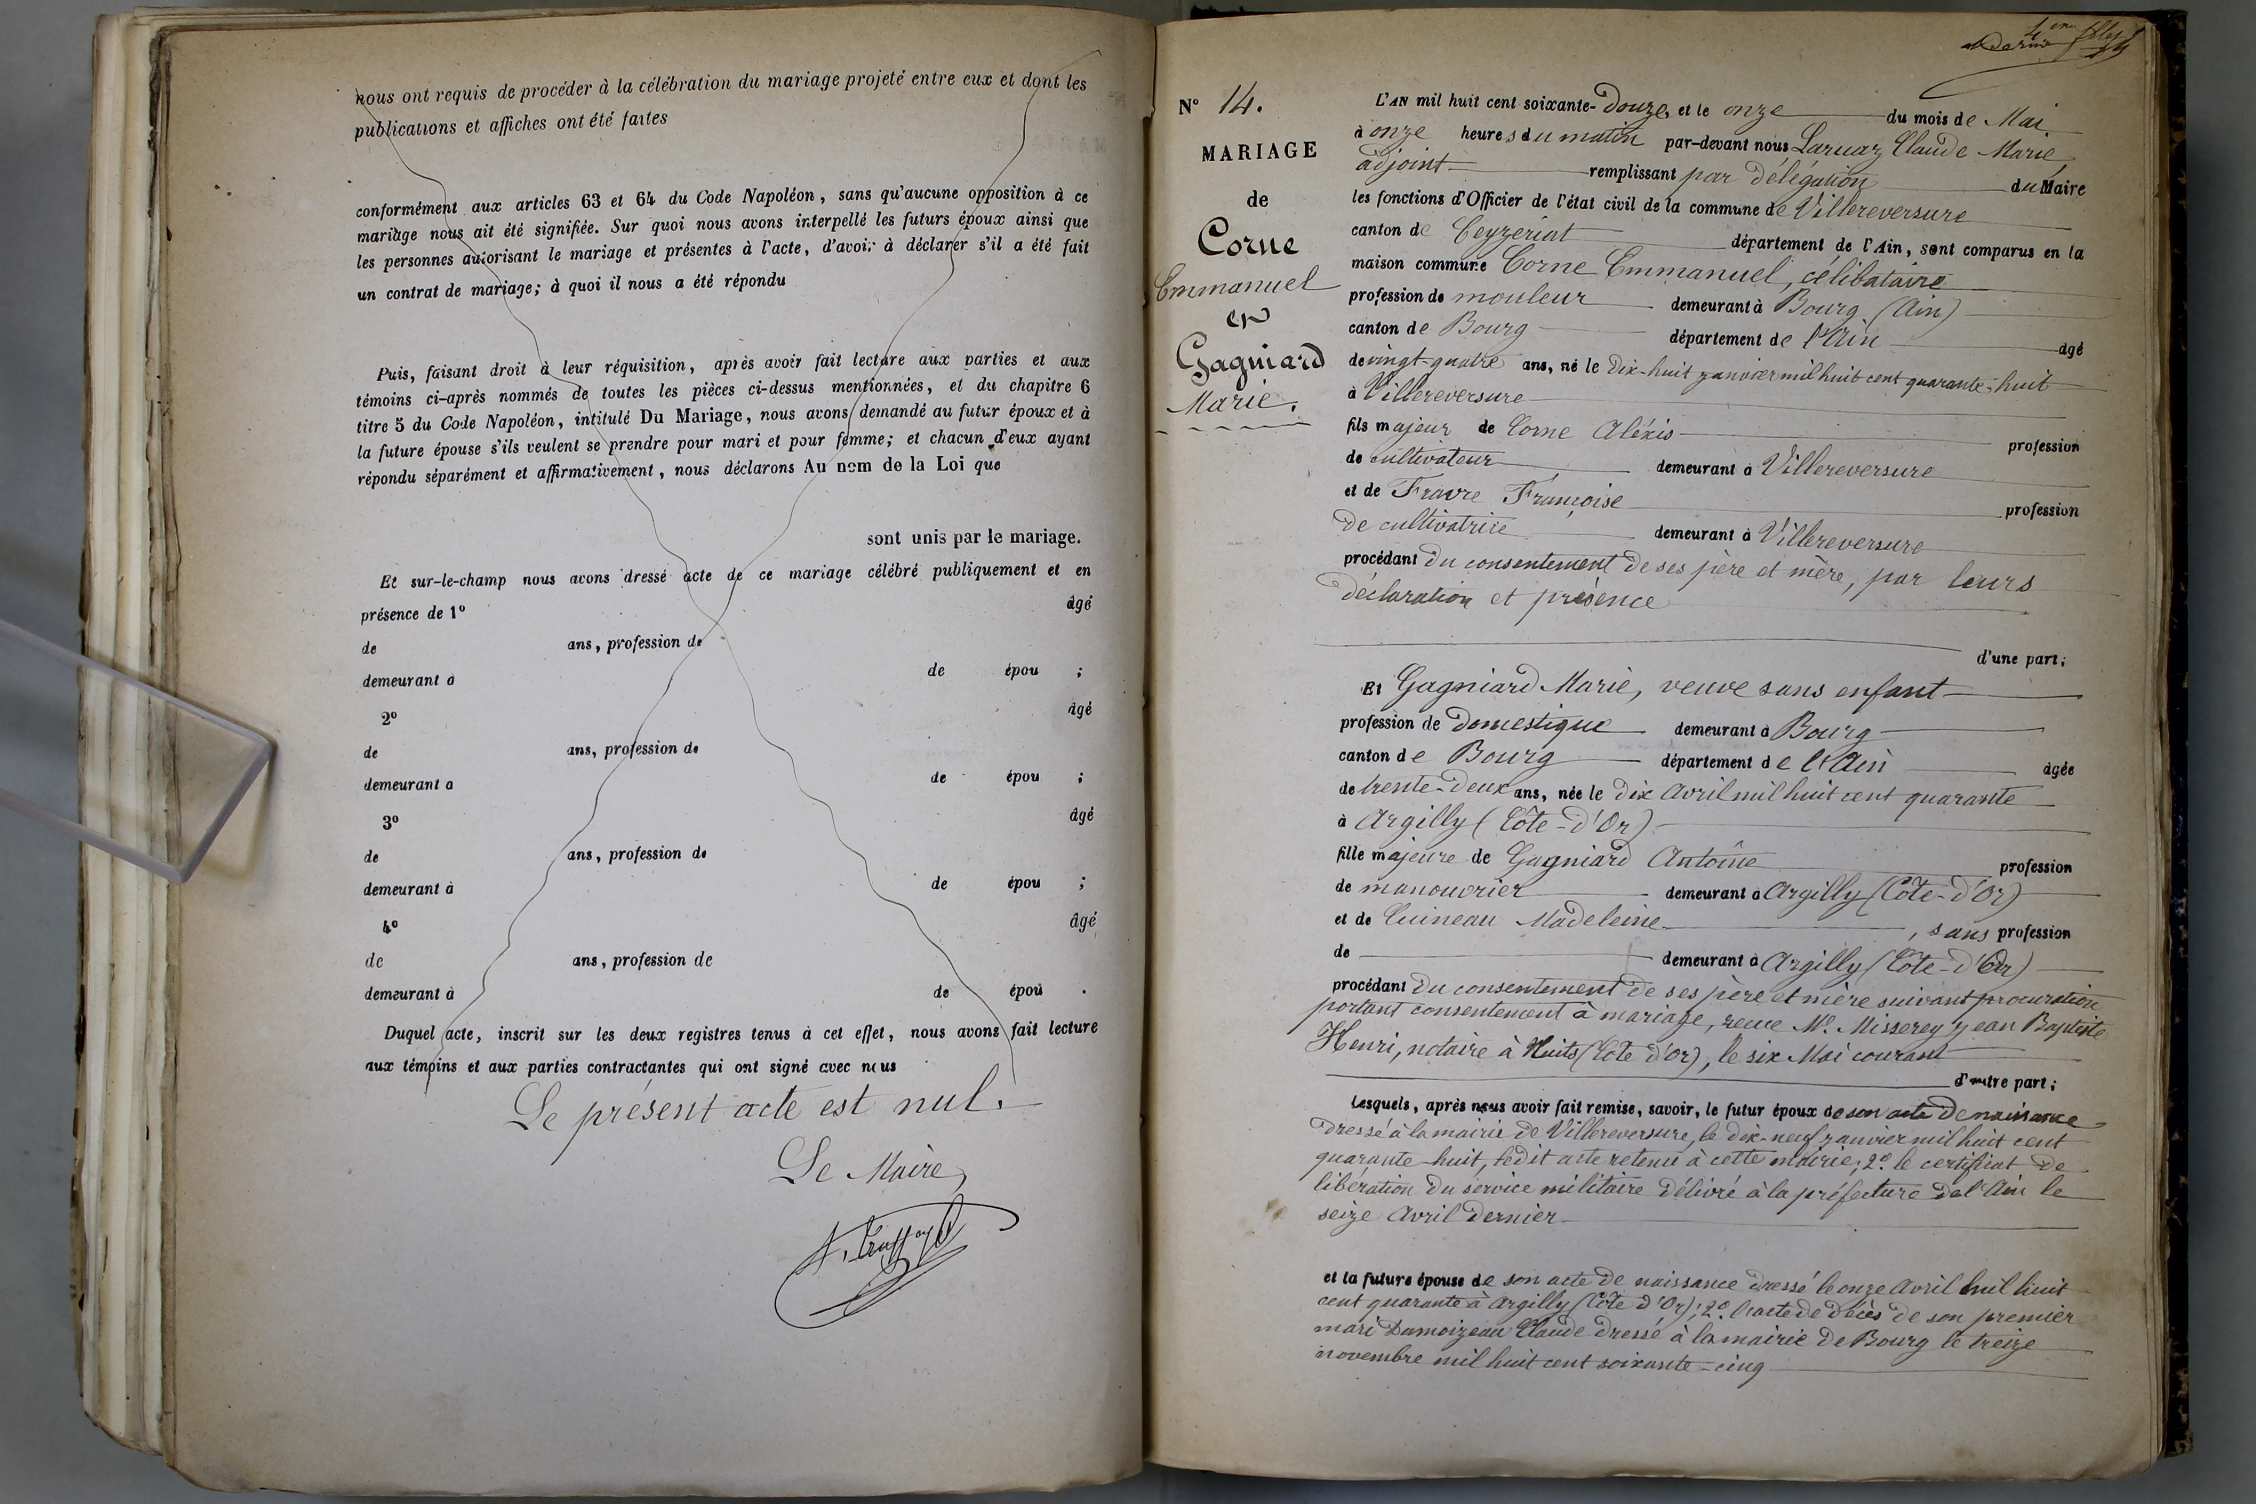 nous ont requis de procéder à la célébration du mariage projeté entre eux et dont les
publications et affiches ont été faites
conformément aux articles 63 et 64 du Code Napoléon, sans qu'aucune opposition à ce
mariage nous ait été signifiée. Sur quoi nous avons interpellé les futurs époux ainsi que
les personnes autorisant le mariage et présentes à l'acte, d'avoir à déclarer s'il a été fait
un contrat de mariage; à quoi il nous a été répondu
Puis, faisant droit à leur réquisition, après avoir fait lecture aux parties et aux
témoins ci-après nommés de toutes les pièces ci-dessus mentionnées, et du chapitre 6
titre 5 du Code Napoléon, intitulé Du Mariage, nous avons demandé au futur époux et à
la future épouse s'ils veulent se prendre pour mari et pour femme; et chacun d'eux ayant
répondu séparément et affirmativement, nous déclarons Au nom de la Loi que
sont unis par le mariage.
Et sur-le-champ nous avons dressé acte de ce mariage célébré publiquement et en
présence de 1° âgé
de ans, profession de
demeurant à de épou ;
2° âgé
de ans, profession de
demeurant à de épou ;
3° âgé
de ans, profession de
demeurant à de épou ;
4° âgé
de ans, profession de
demeurant à de épou .
Duquel acte, inscrit sur les deux registres tenus à cet effet, nous avons fait lecture
aux témoins et aux parties contractantes qui ont signé avec nous
Le présent acte est nul.
Le Maire
N° 14.
MARIAGE
de
Corne
Emmanuel
et
Gagniard
Marie.
L'AN mil huit cent soixante-Douze, et le onze du mois de Mai
à onze heures du matin par-devant nous Laruaz Claude Marie,
adjoint remplissant par Délégation du Maire
les fonctions d'Officier de l'état civil de la commune de Villereversure
canton de Ceyzeriat département de l'Ain, sont comparus en la
maison commune Corne Emmanuel, célibataire
profession de mouleur demeurant à Bourg (Ain)
canton de Bourg département de l'Ain âgé
de vingt-quatre ans, né le Dix-huit janvier mil huit cent quarante-huit
à Villereversure
fils majeur de Corne Aléxis profession
de cultivateur demeurant à Villereversure
et de Fravre Françoise profession
de cultivatrice demeurant à Villereversure
procédant du consentement de ses père et mère, par leurs
déclaration et présence
d'une part;
Et Gagniard Marie, veuve sans enfant
profession de Domestique demeurant à Bourg
canton de Bourg département de l'Ain âgée
de trente-Deux ans, née le Dix Avril mil huit cent quarante
à Argilly (Côte-d'Or)
fille majeure de Gagniard Antoine profession
de manouvrier demeurant à Argilly (Côte-d'Or)
et de Cuineau Madeleine , sans profession
de demeurant à Argilly (Côte-d'Or)
procédant du consentement de ses père et mère suivant procuration
portant consentement à mariage, reçue Me. Misserey Jean Baptiste
Henri, notaire à Nuits (Côte d'Or), le six Mai courant
d'autre part;
Lesquels, après nous avoir fait remise, savoir, le futur époux de son acte De naissance
Dressé à la mairie de Villereversure, le dix-neuf janvier mil huit cent
quarante-huit, ledit acte retenu à cette mairie; 2° le certificat de
libération du service militaire délivré à la préfecture de l'Ain le
seize Avril dernier
et la future épouse de son acte de naissance dressé le onze Avril mil huit
cent quarante à Argilly (Côte d'Or); 2° l'acte de décès de son premier
mari Damoizeau Claude dressé à la mairie de Bourg le treize
novembre mil huit cent soixante-cinq